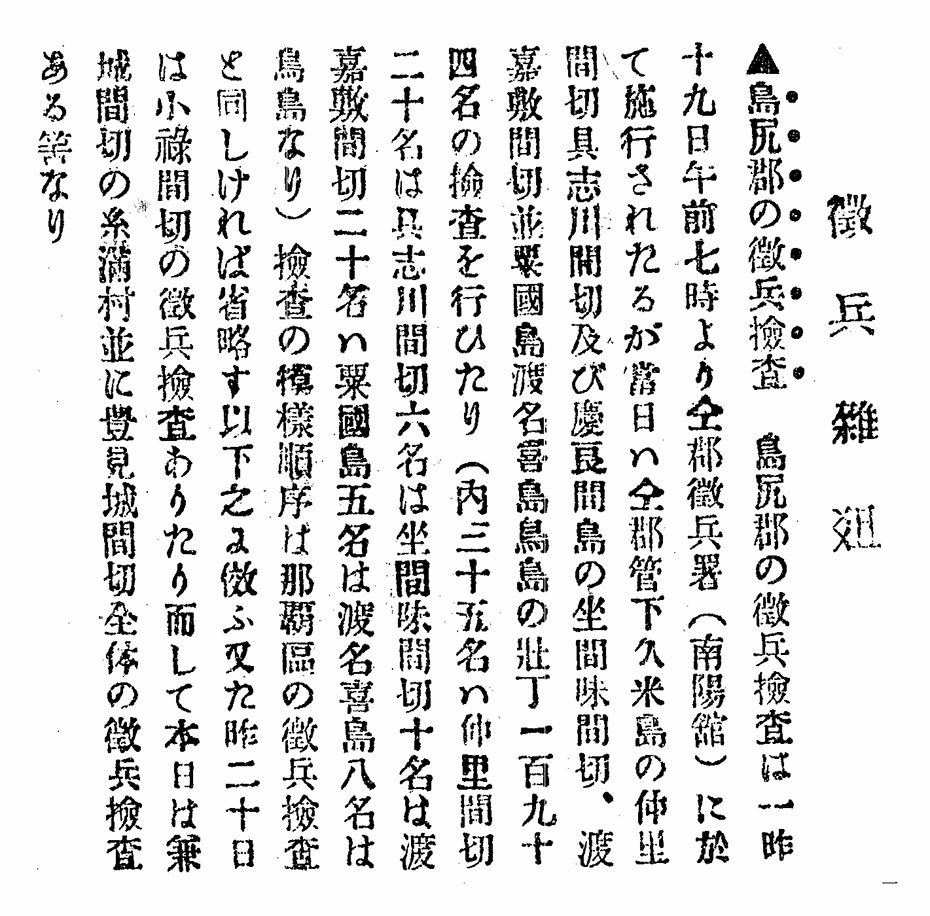 徴兵雑爼
▲島尻郡の徴兵撿査　島尻郡の徴兵撿査は一昨
十九日午前七時より仝郡徴兵署（南陽舘）に於
て施行されたるが當日ハ仝郡管下久米島の仲里
間切具志川間切及び慶良間島の坐間味間切、渡
嘉敷間切並粟國島渡名喜島鳥島の壯丁一百九十
四名の撿査を行ひたり（内三十五名ハ仲里間切
二十名は具志川間切六名は坐間味間切十名は渡
嘉敷間切二十名ハ粟國島五名は渡名喜島八名は
鳥島なり）撿査の摸樣順序は那覇區の徴兵撿査
と同しければ省略す以下之に傚ふ又た昨二十日
は小祿間切の徴兵撿査ありたり而して本日は兼
城間切の糸滿村並に豊見城間切全体の徴兵撿査
ある筈なり